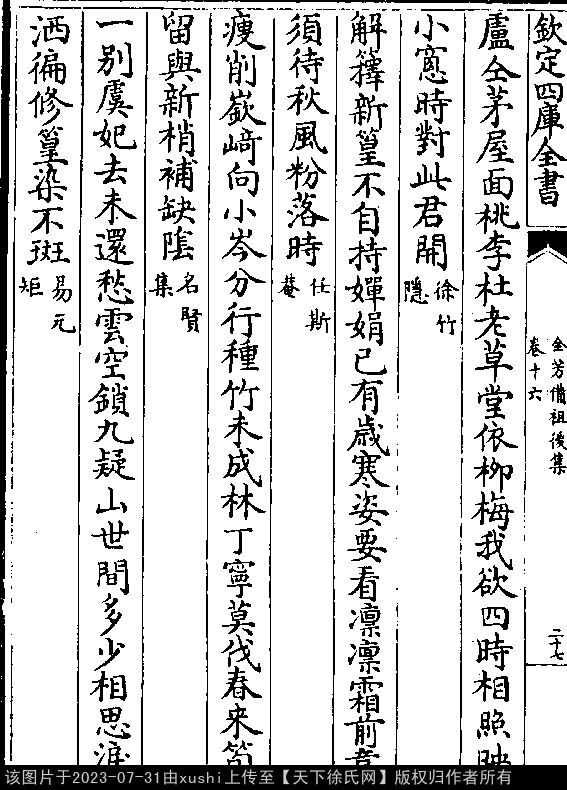 欽定四庫全書
全芳備祖後集
卷十六
二十七
盧仝茅屋面桃李杜老草堂依柳梅我欲四時相照映
小窻時對此君開
徐竹
隱
解籜新篁不自持嬋娟已有歳寒姿要看凛凛霜前意
須待秋風粉落時
任斯
菴
瘦削嶔﨑向小岑分行種竹未成林丁寧莫伐春來筍
留與新梢補缺隂
名賢
集
一别虞妃去未還愁雲空鎖九疑山世間多少相思淚
洒徧修篁染不斑
易元
矩
该图片于2023-07-31由xushi上传至【天下徐氏网】版权归作者所有